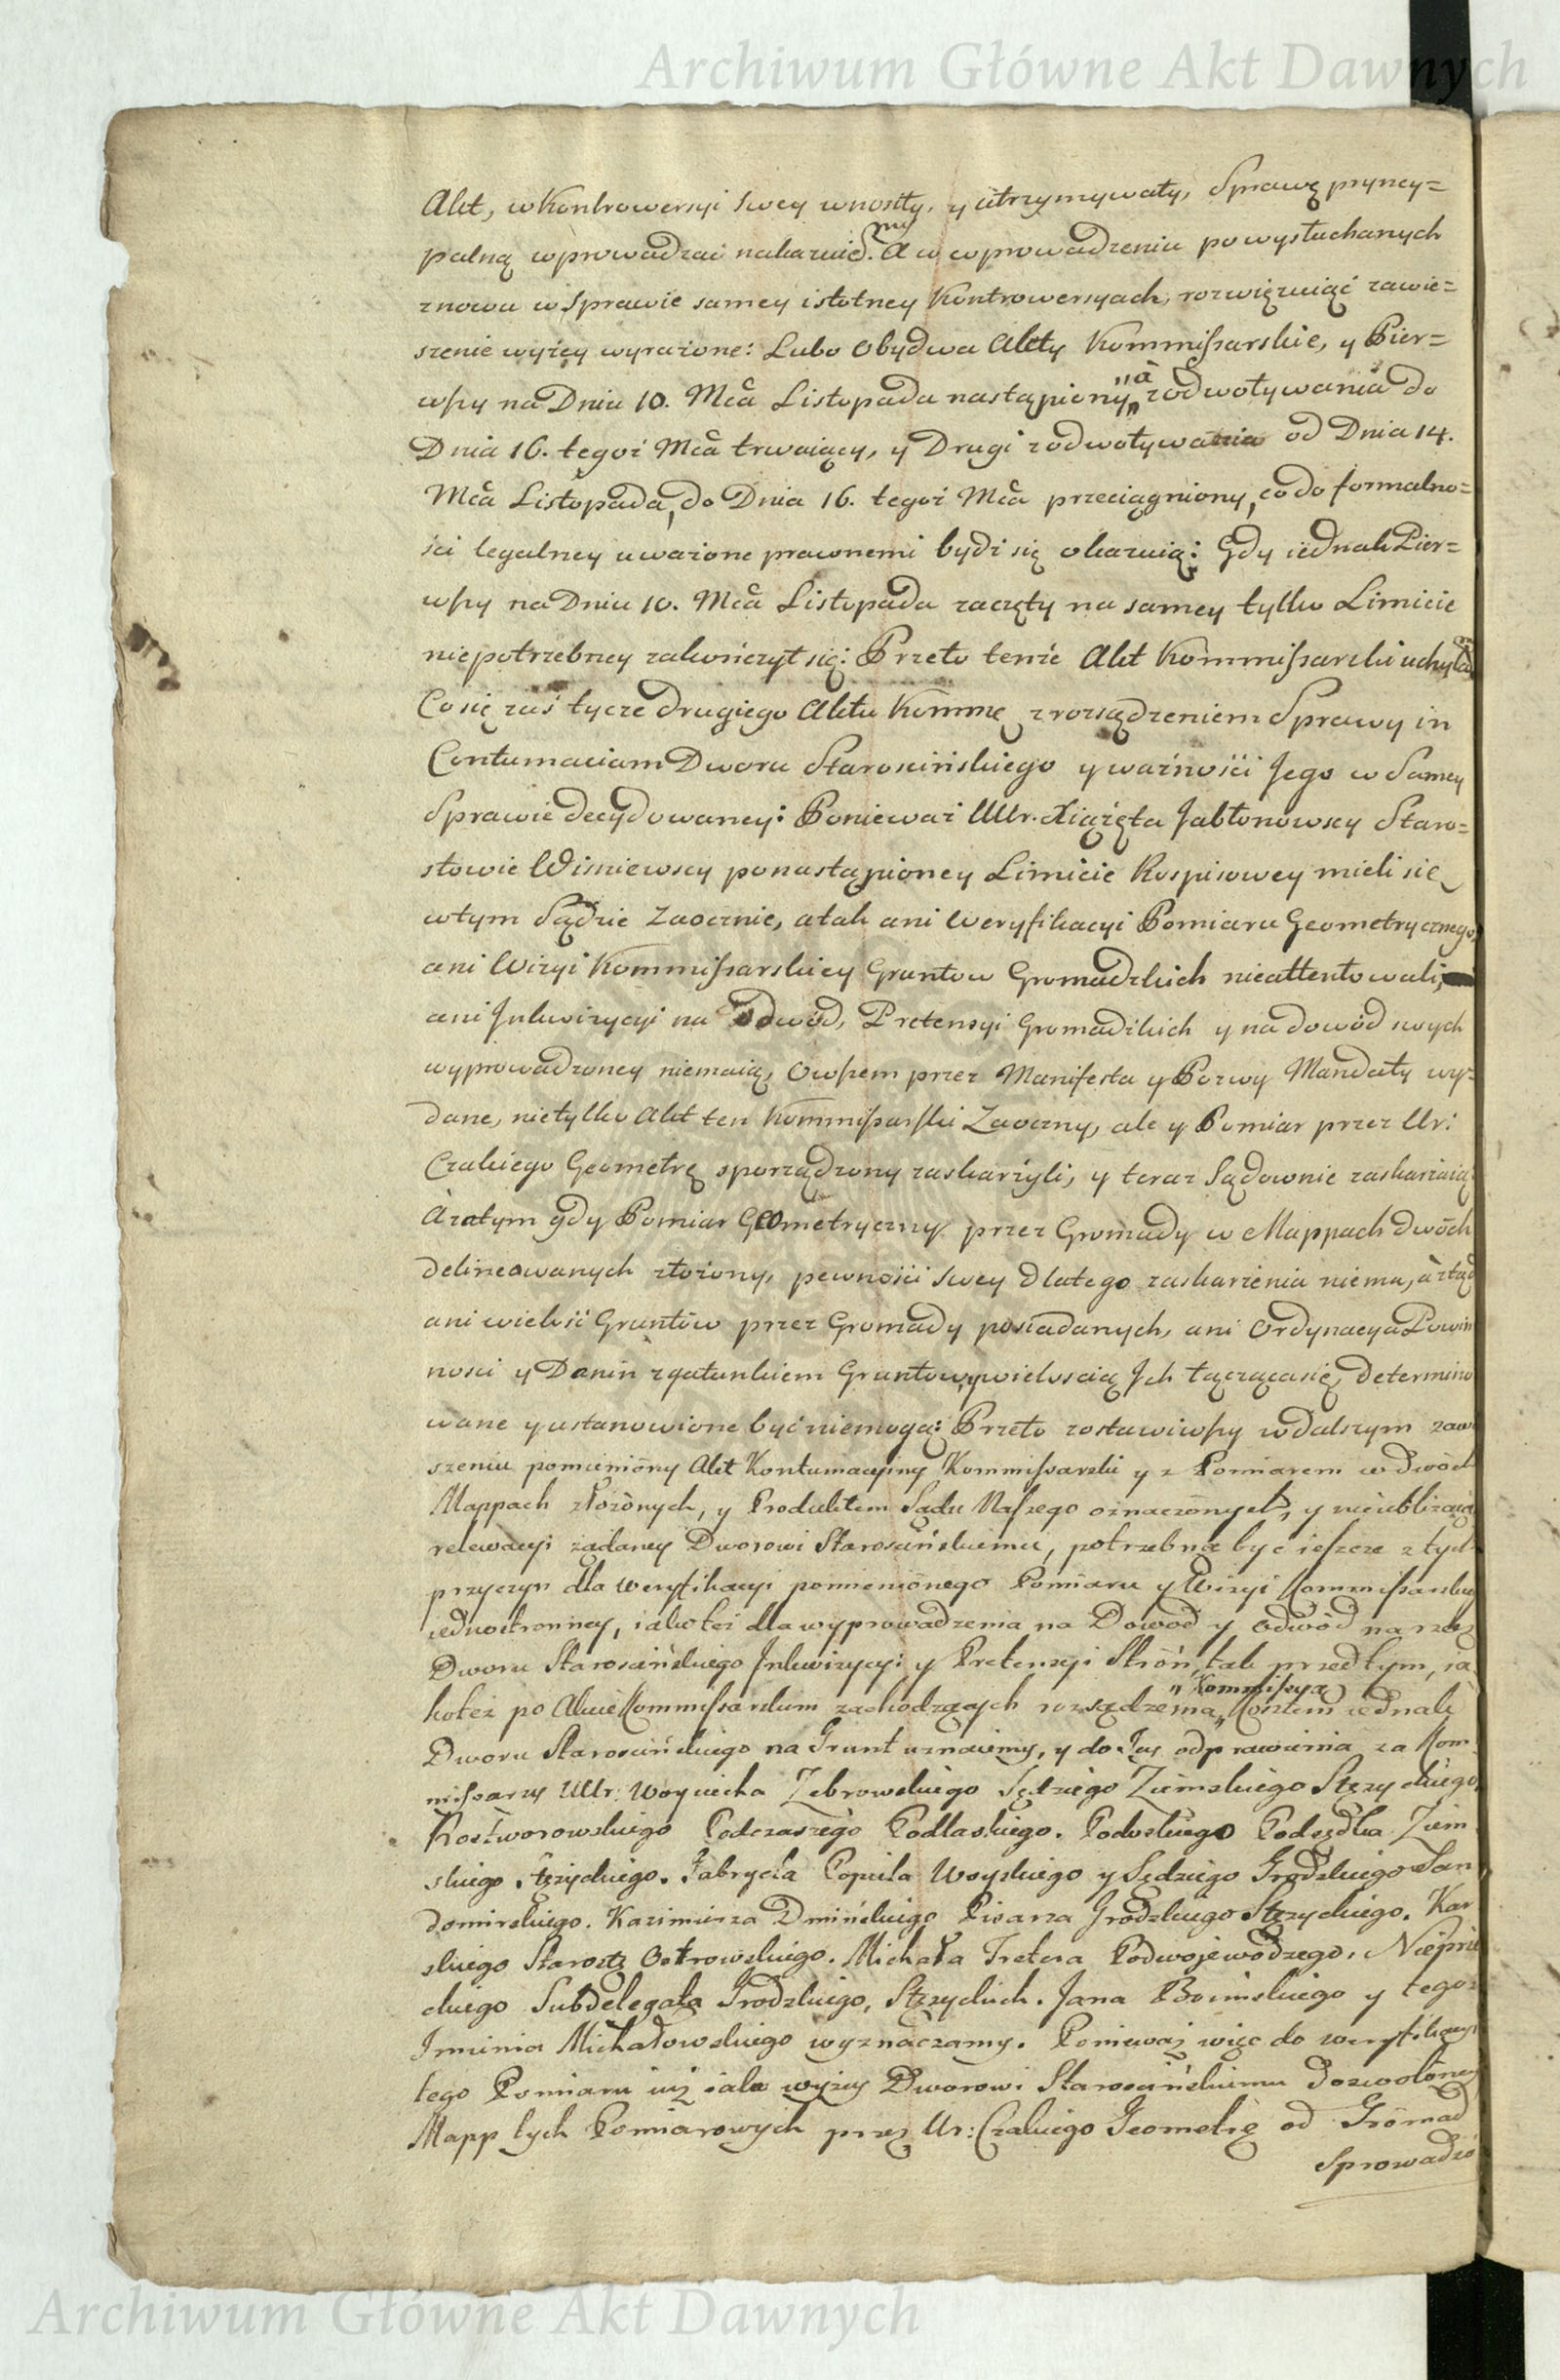 Archiwum Główne Akt Dawnych
Akt, w Kontrowersyi swey wnosiły, y utrzymywały, Sprawę pryncy=
palną wprowadzać nakazuie.my A w wprowadzeniu po wysłuchanych
znowu w Sprawie samey istotney Kontrowersyach, rozwięzuiąć zawie=
szenie wyżey wyrażone: Lubo obydwa Akty Kommißarskie, y Pier=
wßy na Dniu 10. Mca Listopada nastąpiony, "à z odwoływania do
Dnia 16. tegoż Mca trwaiący, y Drugi z odwoływania od Dnia 14.
Mca Listopada, do Dnia 16. tegoż Mca przeciągniony, co do formalno=
ści legalney uważone prawnemi bydź się okazuią: Gdy iednak Pier=
wßy na Dniu 10. Mca Listopada zaczęty na samey tylko Limicie
niepotrzebney zakończył się: Przeto tenże Akt Kommißarski uchyla
Co się zaś tycze drugiego Aktu Kommę z rozsądzeniem Sprawy in
Contumaciam Dworu Starościńskiego y ważności Jego w Samey
Sprawie decydowaney: Ponieważ UUr. Xiążęta Jabłonowscy Staro=
stowie Wiśniewscy po nastąpioney Limicie Rospisowey mieli się
w tym Sądzie Zaocznie, a tak ani Weryfikacyi Pomiaru Geometrycznego,
ani Wizyi Kommißarskiey Gruntow Gromadzkich nieattentowali,
ani Inkwizycyi na Odwód, Pretensyi Gromadzkich y na dowód swych
wyprowadzoney niemaią, Owßem przez Manifesta y Pozwy Mandaty wy=
dane, nietylko Akt ten Kommißarski Zaoczny, ale y Pomiar przez Ur:
Czakiego Geometrę sporządzony zaskarżyli, y teraz Sądownie zaskarżaią.
A zatym gdy Pomiar Geometryczny przez Gromady w Mappach dwóch
delineowanych złożony, pewności swey dla tego zaskarżenia niema, à ztąd
ani wielość Gruntów przez Gromady posiadanych, ani Ordynacya Powin
ności y Danin z gatunkiem Gruntow, y wielością Jch łącząca się, determino
wane y ustanowione być niemogą: Przeto zostawiwßy w dalszym zawie
szeniu pomieniony Akt Kontumacyiny Kommißarski y z Pomiarem w dwóch
Mappach złożonych, y Produktem Sądu Naßego oznaczonych, y nieubliżaią
relewacyi żądaney Dworowi Starościńskiemu, potrzebną być ießcze z tych
przyczyn dla weryfikacyi pomienionego Pomiaru y Wizyi Kommißarskiey
iednostronney, iakoteż dla wyprowadzenia na Dowód y Odwód na rzecz
Dworu Starościńskiego Inkwizycyi y Pretensyi Stron, tak przedtym, ia
koteż po Akcie Kommißarskim zachodzących rozsądzenia, "Kommißyą Kosztem iednak
Dworu Starościńskiego na Grunt uznaiemy, y do Jey odprawienia za Kom
mißarzy UUr: Woyciecha Zebrowskiego Sędziego Ziemskiego Stężyckiego,
Rostworowskiego Podczaszego Podlaskiego. Podoskiego Podsędka Ziem
skiego Stężyckiego. Fabrycla Popiela Woyskiego y Sędziego Grodzkiego San
domirskiego. Kazimierza Dmińskiego Pisarza Grodzkiego Stężyckiego. Kar
skiego Starostę Ostrowskiego. Michała Tretera Podwojewodzego. Nieprze
ckiego Subdelegata Grodzkiego, Stężyckich. Jana Boimskiego y tegoż
Imienia Michałowskiego wyznaczamy. Ponieważ więc do weryfikacyi
tego Pomiaru iuż iako wyżey Dworowi Starościńskiemu dozwoloney
Mapp tych Pomiarowych przez Ur: Czakiego Geometrę od Gromad
sprowadze
Archiwum Główne Akt Dawnych